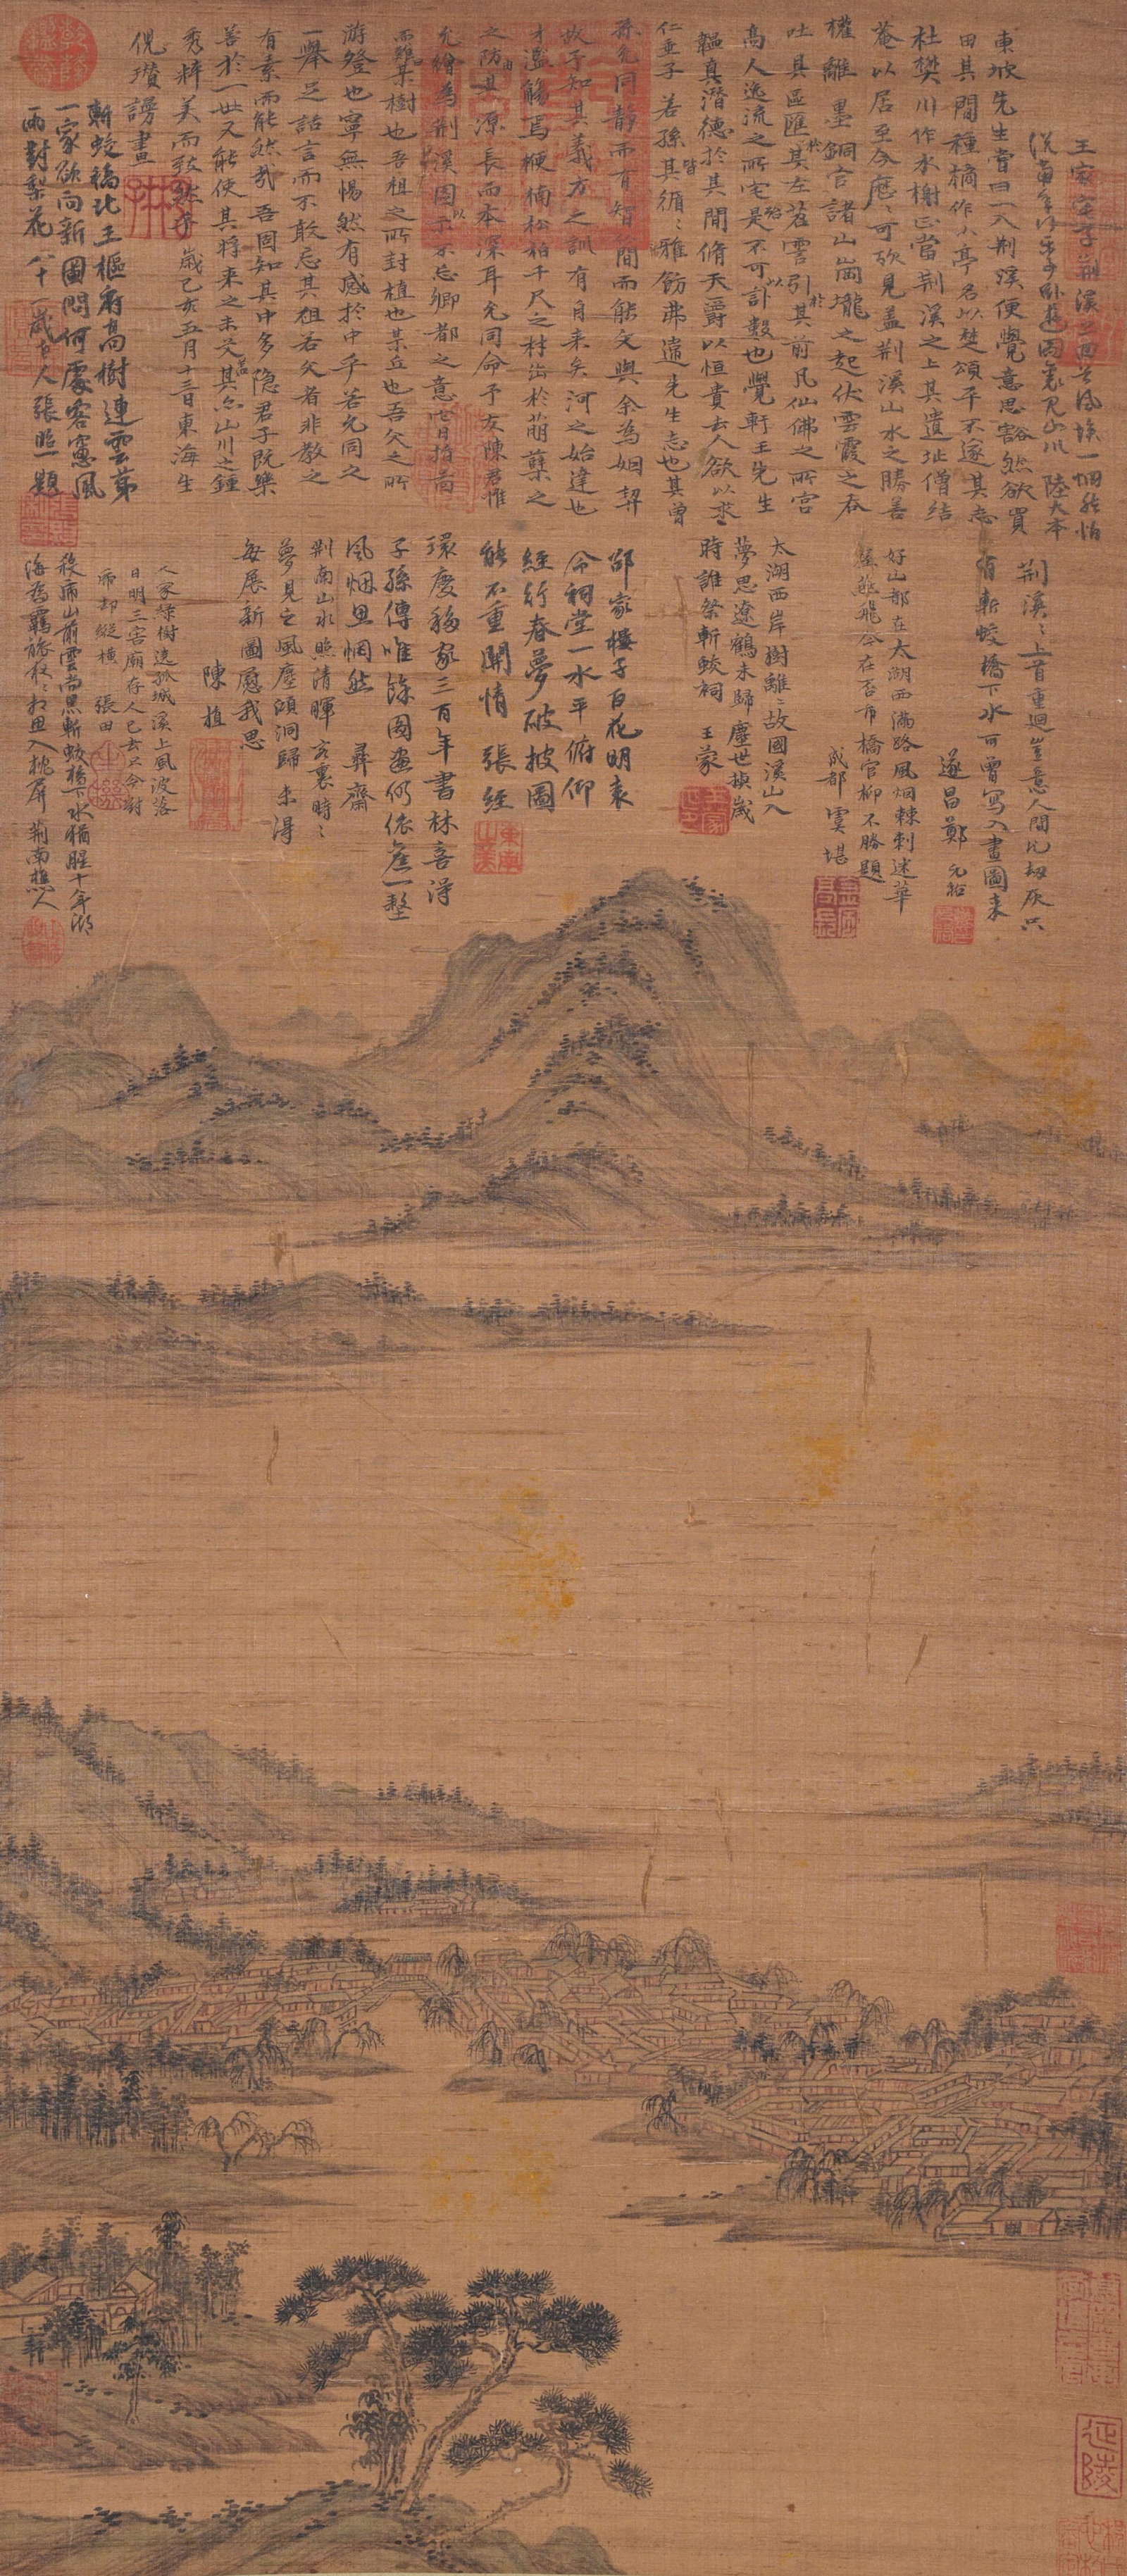 王家宅子荊溪上
臥遊圖裏見山川 陸大本
東坡先生嘗曰一入荊溪便覺意思豁然欲買
田其間種橘作小亭名以楚頌卒不遂其志
杜樊川作水榭正當荊溪之上其遺址僧結
菴以居至今歷歷可玩見蓋荊溪山水之勝善
權離墨銅官諸山崗壠之起伏雲霞之吞
吐具區匯其左苕霅引其前凡仙佛之所宮
高人逸流之所宅是不可計數也覺軒王先生
韞真潛德於其間脩天爵以恒貴去人欲以求
仁垂子若孫皆循循雅飭弗違先生志也其曾
孫允同靜而有智簡而能文與余為姻契
故予知其義方之訓有自来矣河之始達也
才濫觴焉梗楠松柏千尺之材出於萌蘗之
之防由其源長而本深耳允同命予友陳君惟
允繪為荊溪圖以示不忘鄉都之意它日指畫
而歎某樹也吾祖之所封植也某丘也吾父之所
游登也寧無惕然有感於中乎若允同之
一舉足詁言而不敢忘其祖若父者非教之
有素而能然哉吾固知其中多隱君子既樂
善於一世又能使其將来之未艾其亦山川之鍾
秀粹美而致然乎歲己亥五月十三日東海生
倪瓚謗畫
斬蛟橋北王樞府高樹連雲第
一家欲向新圖問何處客窗風
雨對梨花八十一歲古人張監題
荊溪溪上首重迴豈意人間見劫灰只
有斬蛟橋下水可曾寫入畫圖来
遂昌鄭元祐
好山都在太湖西滿路風烟棘刺迷華
飛今在否市橋官柳不勝題
成都虞堪
太湖西岸樹離離故國溪山入
夢思遼鶴未歸塵世換歲
時誰祭斬蛟祠 王蒙
邵家樓子百花明表
令祠堂一水平俯仰
經行春夢破披圖
能不重關情 張經
環慶移家三百年書林喜得
子孫傳唯餘圖畫仍依舊一壑
風烟思惘然 彝齋
荊南山水照清暉 裏時時
夢見之風塵澒洞歸未得
每展新圖慰我思
陳植
人家綠樹遶孤城溪上風波落
日明三害廟存人已去只今對
縱橫 張田
山前雲尚黑斬蛟橋下水猶腥十年湖
海為羈旅夜夜相思入枕屏 荊南樵人
延陵